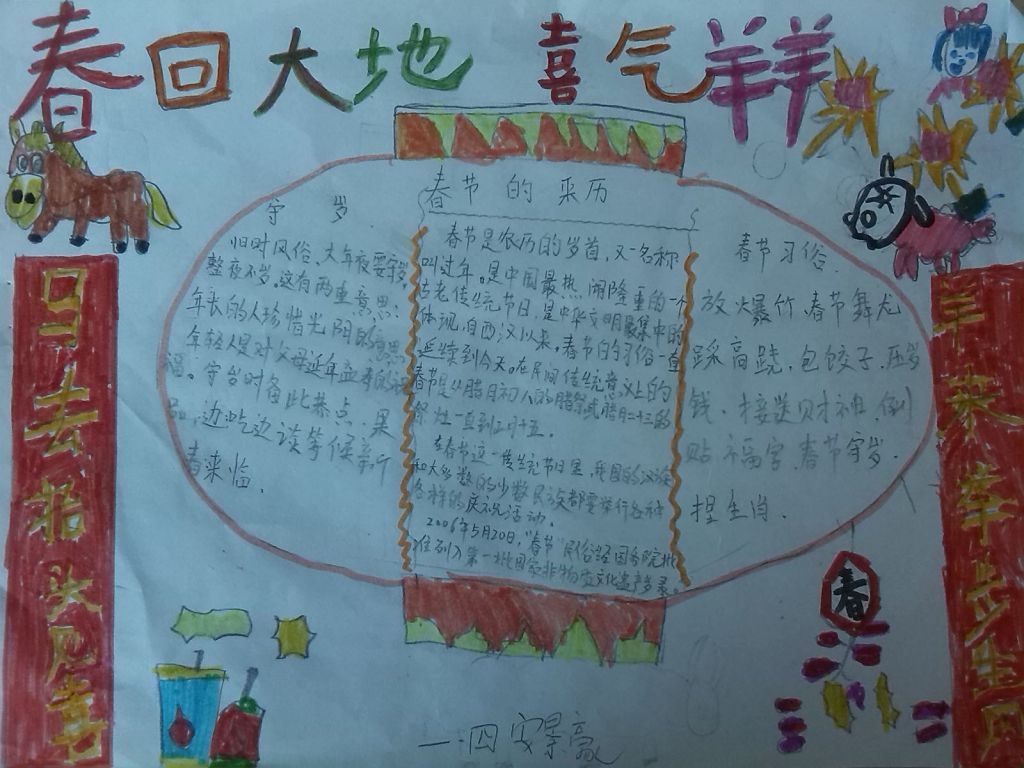 春回大地 喜气羊羊
马去抬头见喜
羊来举步生风
守 岁
旧时风俗，大年夜要守岁，
整夜不岁。这有两重意思：
年长的人珍惜光阴的意思
年轻人是对父母延年益寿的祝
福。守岁时备此恭点、果
品，边吃边谈等候新
春来临。
春节的来历
春节是农历的岁首，又一名称
叫过年。是中国最热闹隆重的一个
古老传统节日，是中华文明最集中的
体现，自西汉以来，春节的习俗一直
延续到今天。在民间传统意义上的
春节是从腊月初八的腊祭或腊月二十三的
祭灶一直到正月十五。
在春节这一传统节日里，我国的汉族
和大多数的少数民族都要举行各种
各样的庆祝活动。
2006年5月20日，“春节”民俗经国务院批
准列入第一批国家非物质文化遗产名录。
春节习俗
放爆竹、春节舞龙
踩高跷、包饺子、压岁
钱、接送财神、倒
贴福字、春节守岁、
捏生肖.
春
一.四 安景豪